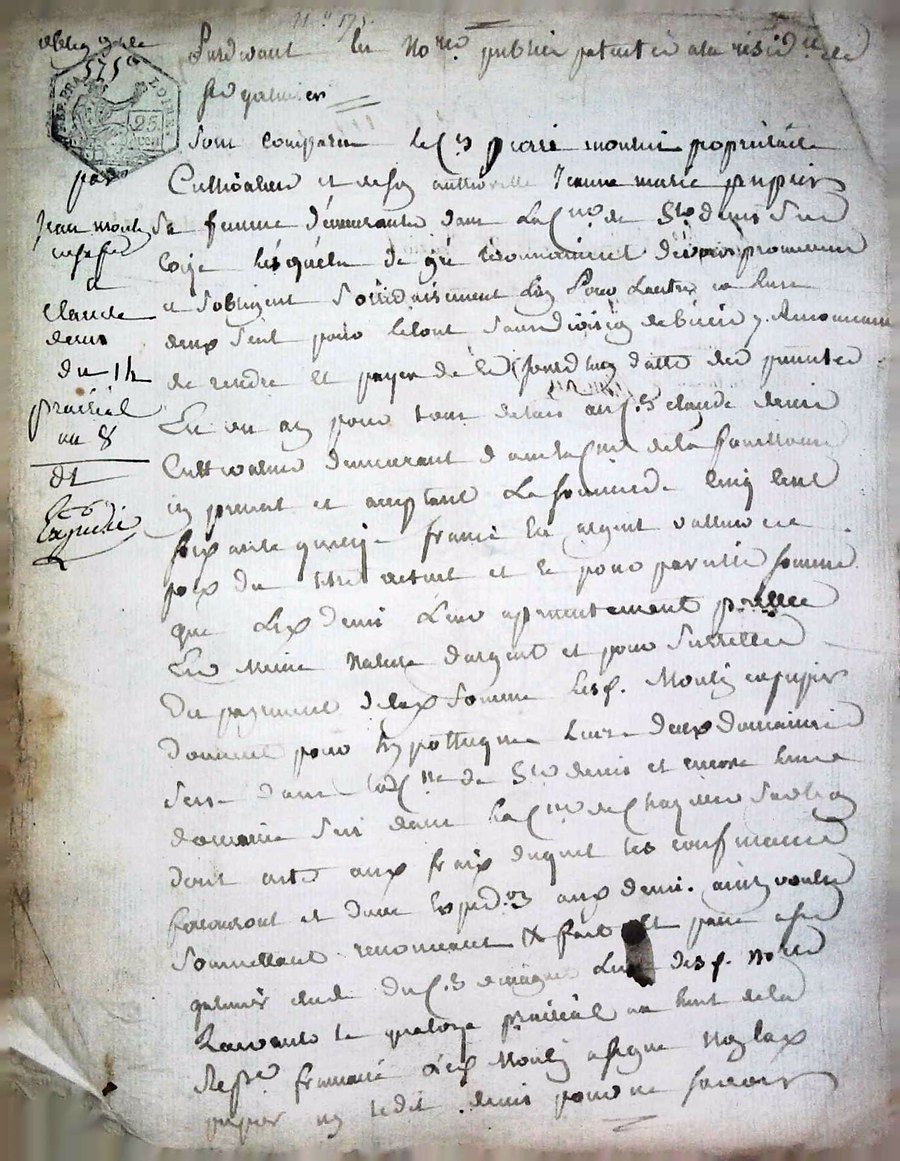 oblig
575
25
par
Jean moulin
sa fe
a
claude
denis
du 14
prairial
an 8
dt
Expedié
Pardevant les Nores publics patentés a la residence de
St galmier
Sont comparu le Cn pierre moulin proprietaire
Cultivateur et de son authorité Jeanne marie pupier
Sa femme demeurants dans la Cne de St denis Sur
coize lesquels de gré reconnaissent devoir promettent
et s'obligent Solidairement L'un pour Lautre et lun
deux Seul pour letout Sans division
de rendre et payer de ce jourdhuy datte des presentes
En un an pour tout delais au Cn claude denis
Cultivateur demeurant dans la Cne de la fouillouse
icy present et acceptant La somme de Cinq Cent
soixante quinze francs En argent valleur
poix du titre actuel et ce pour pareille somme
que Led denis Leur a presentement prettée
En meme Nature dargent et pour Surette
Du payement de lad Somme Lesd. Moulin et pupier
donnent pour hypotheque Leurs deux domaines
Sis dans lad Cne de St denis et encore leur
domaine Sis dans la Cne de Chazelles Sur lyon
dont acte aux fraix duquel les confessants
fourniront et dune exped.on aud denis. ainsy voulu
Soumettant renonceant &c fait et passé a St
galmier etude du Cn Lun desd. Nores
Recevants le quatorze prairial an huit de la
Repque francaise Led Moulin a signé Non lad
pupier ny ledit denis pour ne Scavoir